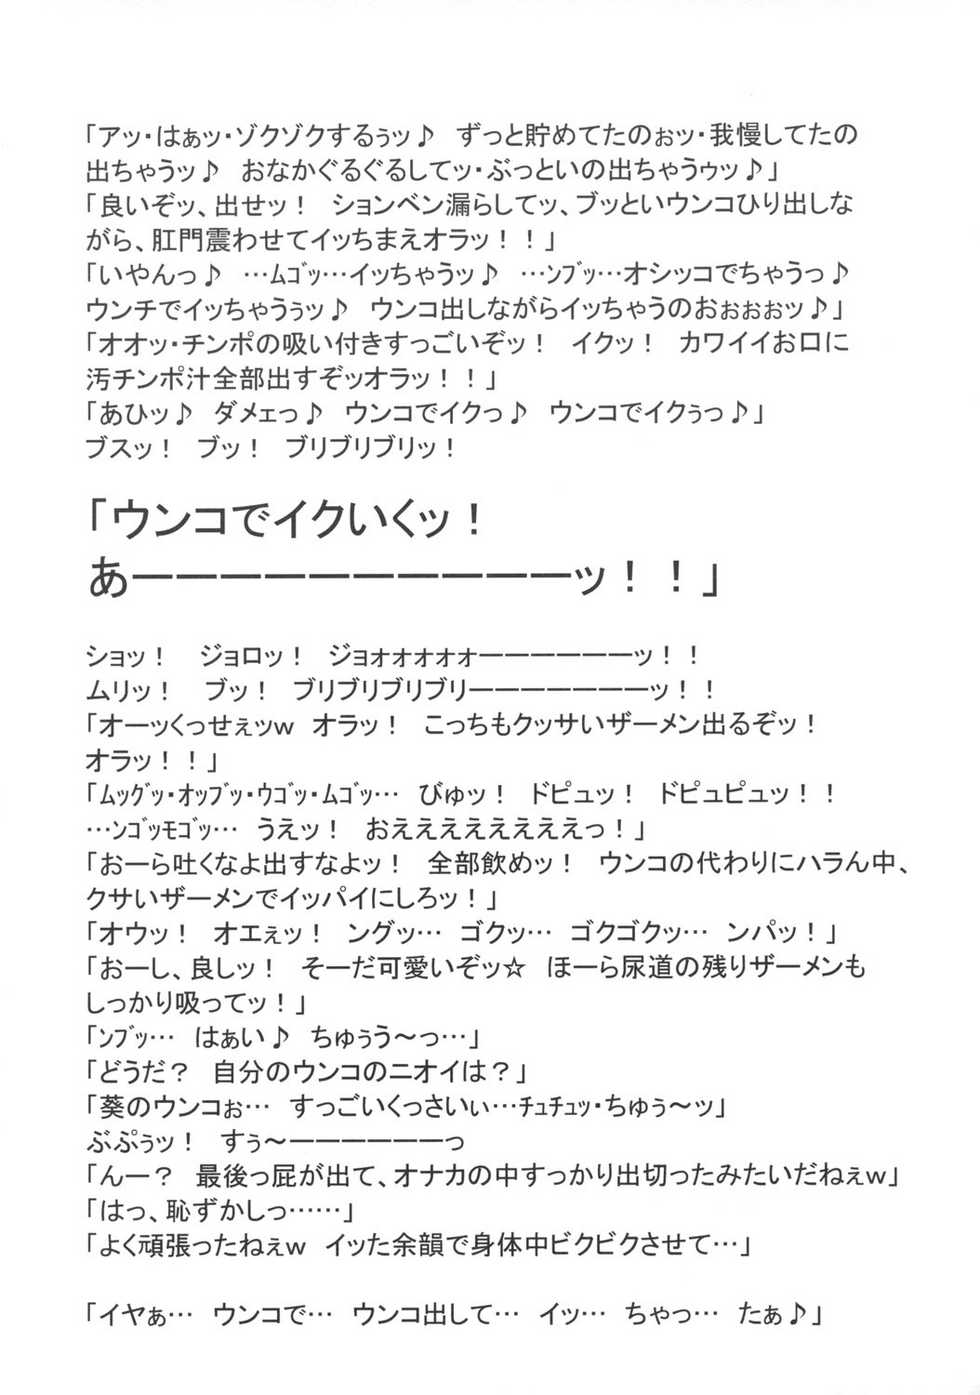 「アッ・はぁッ・ゾクゾクするぅッ♪　ずっと貯めてたのぉッ・我慢してたの
出ちゃうッ♪　おなかぐるぐるしてッ・ぶっといの出ちゃうゥッ♪」
「良いぞッ、出せッ！　ションベン漏らしてッ、ブッといウンコひり出しな
がら、肛門震わせてイッちまえオラッ！！」
「いやんっ♪　…ﾑｺﾞｯ…イッちゃうッ♪　…ﾝﾌﾞｯ…オシッコでちゃうっ♪
ウンチでイッちゃうぅッ♪　ウンコ出しながらイッちゃうのおぉぉぉッ♪」
「オオッ・チンポの吸い付きすっごいぞッ！　イクッ！　カワイイお口に
汚チンポ汁全部出すぞッオラッ！！」
「あひッ♪　ダメェっ♪　ウンコでイクっ♪　ウンコでイクぅっ♪」
ブスッ！　ブッ！　ブリブリブリッ！
「ウンコでイクいくッ！
あーーーーーーーーーーーッ！！」
ショッ！　ジョロッ！　ジョォォォォォーーーーーーーッ！！
ムリッ！　ブッ！　ブリブリブリブリーーーーーーーーッ！！
「オーッくっせぇッｗ　オラッ！　こっちもクッサいザーメン出るぞッ！
オラッ！！」
「ﾑｯｸﾞｯ・ｵｯﾌﾞｯ・ｳｺﾞｯ・ﾑｺﾞｯ…　びゅッ！　ドピュッ！　ドピュピュッ！！
…ﾝｺﾞｯﾓｺﾞｯ…　うえッ！　おえええええええええっ！」
「おーら吐くなよ出すなよッ！　全部飲めッ！　ウンコの代わりにハラん中、
クサいザーメンでイッパイにしろッ！」
「オウッ！　オエェッ！　ングッ…　ゴクッ…　ゴクゴクッ…　ンパッ！」
「おーし、良しッ！　そーだ可愛いぞッ☆　ほーら尿道の残りザーメンも
しっかり吸ってッ！」
「ﾝﾌﾞｯ…　はぁい♪　ちゅぅう～っ…」
「どうだ？　自分のウンコのニオイは？」
「葵のウンコぉ…　すっごいくっさいぃ…ﾁｭﾁｭｯ・ちゅぅ～ッ」
ぶぷぅッ！　すぅ～ーーーーーーっ
「んー？　最後っ屁が出て、オナカの中すっかり出切ったみたいだねぇｗ」
「はっ、恥ずかしっ……」
「よく頑張ったねぇｗ　イッた余韻で身体中ビクビクさせて…」
「イヤぁ…　ウンコで…　ウンコ出して…　イッ…　ちゃっ…　たぁ♪」